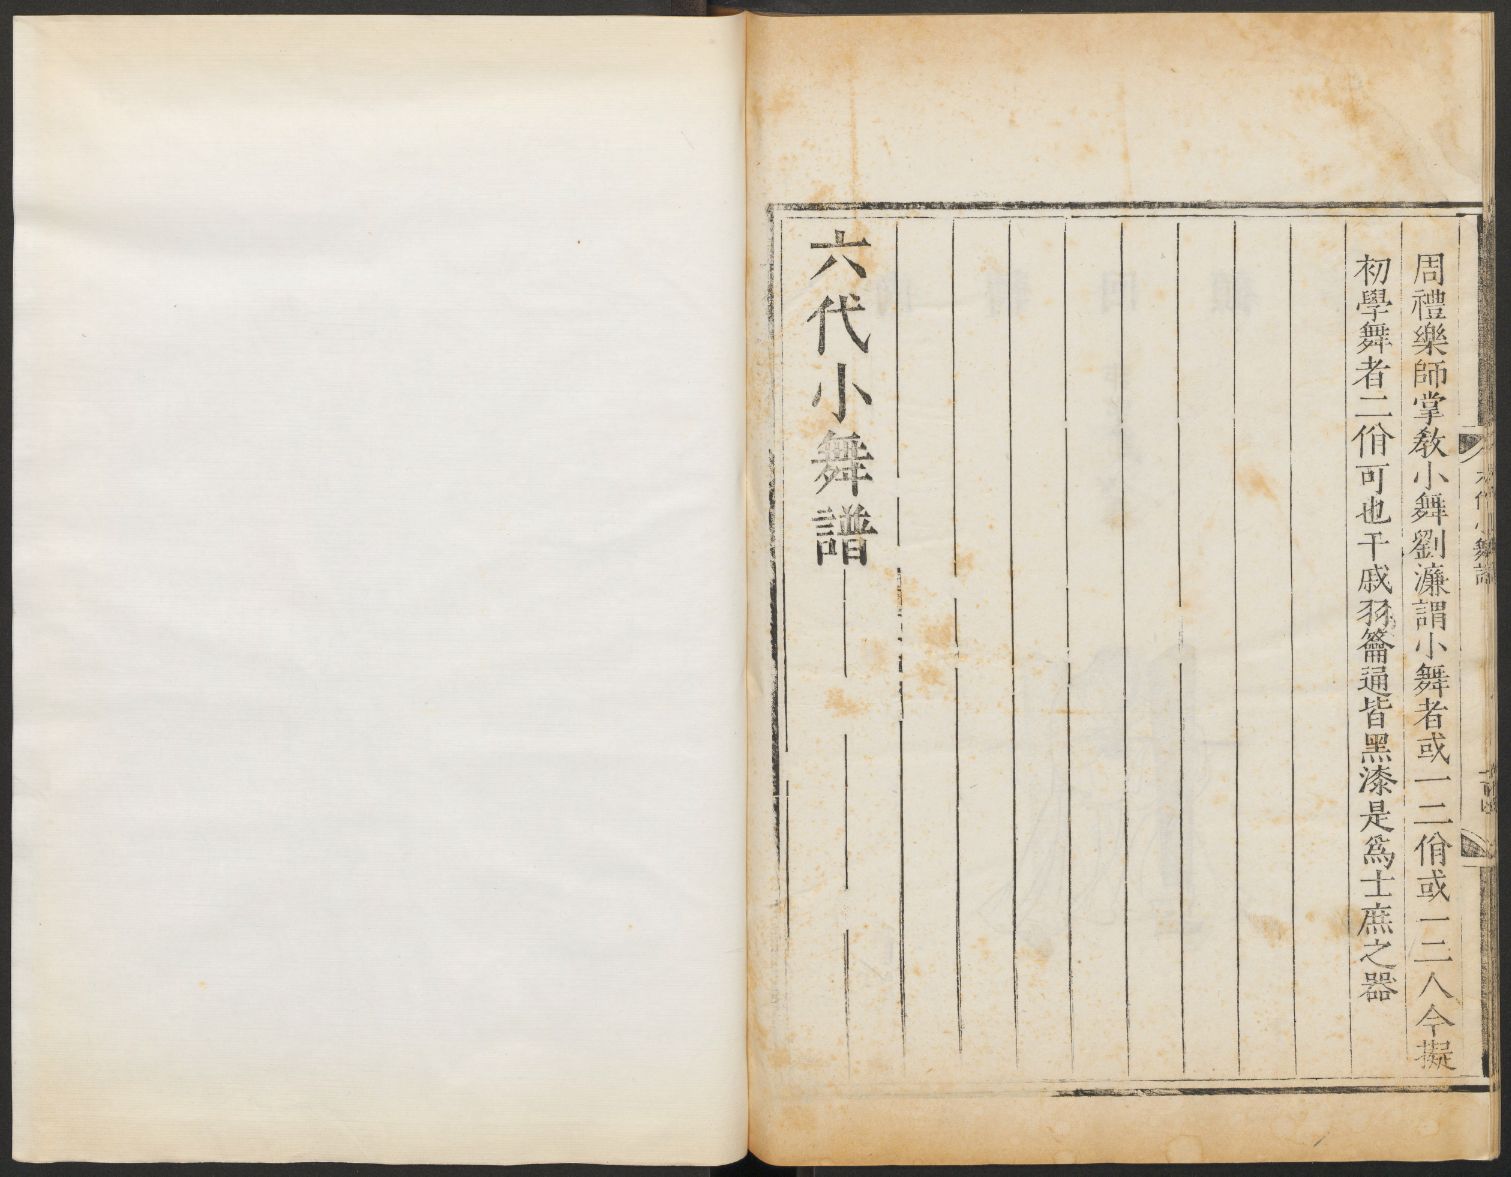 周禮樂師掌教小舞劉濂謂小舞者或一二佾或一二人今擬
初學舞者二佾可也干戚羽籥通皆黑漆是爲士庶之器
六代小舞譜
六代小舞譜